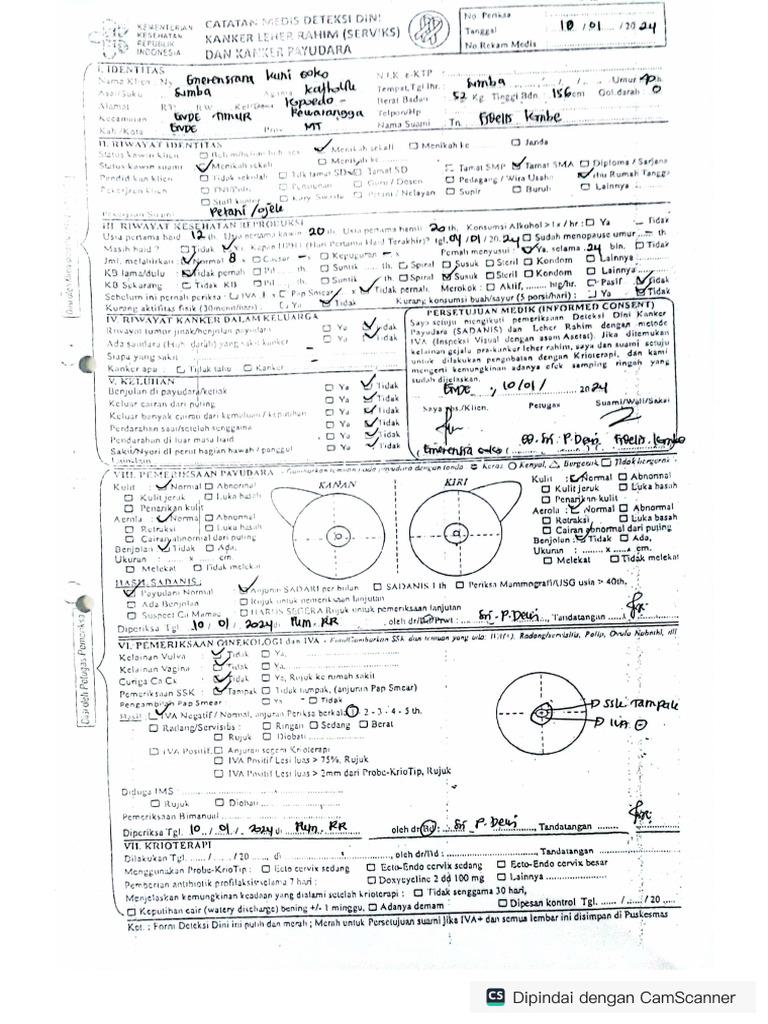 KEMENTERIAN
KESEHATAN
REPUBLIK
INDONESIA
CATATAN MEDIS DETEKSI DINI
KANKER LEHER RAHIM (SERVIKS)
DAN KANKER PAYUDARA
No. Periksa
Tanggal 10 / 01 / 20 24
No Rekam Medis
I. IDENTITAS
Nama Klien Ny Emerensiana Kuni Goko N.I.K e-KTP
Asal/Suku Sumba Agama Katholik Tempat, Tgl lhr. Sumba Umur 40 th
Alamat RT: RW Berat Badan 52 Kg. Tinggi Bdn. 156 cm Gol.darah O
Kecamatan ENDE TIMUR Rewarangga Telpon/Hp
Kab/Kota ENDE Prov NTT Nama Suami Tn Fidelis Kambe
II. RIWAYAT IDENTITAS
Status kawin klien Menikah sekali Menikah ke Janda
Status kawin suami Menikah sekali Menikah ke
Pendidikan klien Tidak sekolah Tamat SD Tamat SMP Tamat SMA Diploma / Sarjana
Pekerjaan klien Guru / Dosen Pedagang / Wira Usaha Ibu Rumah Tangga
Petani / Nelayan Supir Buruh Lainnya
Pekerjaan Suami Petani /ojek
III. RIWAYAT KESEHATAN REPRODUKSI
Usia pertama haid 12 th. Usia pertama kawin 20 th. Usia pertama hamil 20 th. Konsumsi Alkohol > 1x / hr : Ya Tidak
Masih haid ? Tidak Ya, Kapan HPHT (Hari Pertama Haid Terakhir)? tgl. 04 / 01 / 20.24 Sudah menopause umur th
Jml. melahirkan : Normal 8 x Caesar - x Keguguran - x Pernah menyusui : Ya, selama 24 bln. Tidak
KB lama/dulu : Tidak pernah Pil th. Suntik th. Spiral Susuk Steril Kondom Lainnya
KB Sekarang : Tidak KB Pil th. Suntik th. Spiral Susuk Steril Kondom Lainnya
Sebelum ini pernah periksa : IVA x Pap Smear x Tidak pernah. Merokok : Aktif, btg/hr. Pasif Tidak
Kurang aktifitas fisik (30menit/hari) : Ya Tidak Kurang konsumsi buah/sayur (5 porsi/hari) : Ya Tidak
IV. RIWAYAT KANKER DALAM KELUARGA
Riwayat tumor jinak/benjolan payudara Ya Tidak
Ada saudara (Hub. darah) yang sakit kanker -
Siapa yang sakit -
Kanker apa : Tidak tahu Kanker
PERSETUJUAN MEDIK (INFORMED CONSENT)
Saya setuju mengikuti pemeriksaan Deteksi Dini Kanker
Payudara (SADANIS) dan Leher Rahim dengan metode
IVA (Inspeksi Visual dengan asam Asetat). Jika ditemukan
kelainan gejala pra-kanker leher rahim, saya dan suami setuju
untuk dilakukan pengobatan dengan Krioterapi, dan kami
mengerti kemungkinan adanya efek samping ringan yang
sudah dijelaskan.
ENDE, 10/01/ 2024
Saya Ibu/Klien. Petugas Suami/Wali/Saksi
Sri. P. Dewi Fidelis Kambe
V. KELUHAN
Benjolan di payudara/ketiak Ya Tidak
Keluar cairan dari puting Ya Tidak
Keluar banyak cairan dari kemaluan / keputihan Ya Tidak
Perdarahan saat/setelah senggama Ya Tidak
Perdarahan di luar masa haid Ya Tidak
Sakit/Nyeri di perut bagian bawah / panggul Ya Tidak
VIII. PEMERIKSAAN PAYUDARA - Gambarkan temuan pada payudara dengan tanda : Keras, Kenyal, Bergerak Tidak bergerak
Kulit : Normal Abnormal
Kulit jeruk Luka basah
Penarikan kulit
Aerola : Normal Abnormal
Retraksi Luka basah
Cairan abnormal dari puting
Benjolan : Tidak Ada,
Ukuran : x cm.
Melekat Tidak melekat
KANAN
KIRI
Kulit : Normal Abnormal
Kulit jeruk Luka basah
Penarikan kulit
Aerola : Normal Abnormal
Retraksi Luka basah
Cairan abnormal dari puting
Benjolan : Tidak Ada,
Ukuran : ........ x ...... cm.
Melekat Tidak melekat
HASIL SADANIS :
Payudara Normal Anjuran SADARI per bulan SADANIS 1 th Periksa Mammografi/USG usia > 40th.
Ada Benjolan Rujuk untuk pemeriksaan lanjutan
Suspect Ca Mamae HARUS SEGERA Rujuk untuk pemeriksaan lanjutan
Diperiksa Tgl 10 / 01 / 2024 di Pkm. RR oleh dr/Bd/Prwt : Sri - P. Dewi, Tandatangan
VI. PEMERIKSAAN GINEKOLOGI dan IVA
Kelainan Vulva : Tidak Ya,
Kelainan Vagina : Tidak Ya,
Curiga Ca Cx : Tidak Ya, Rujuk ke rumah sakit
Pemeriksaan SSK : Tampak Tidak tampak, (anjuran Pap Smear)
Pengambilan Pap Smear : Ya Tidak
Hasil : IVA Negatif / Normal, anjuran Periksa berkala 1 - 2 - 3 - 4 - 5 th.
Radang/Servisitis : Ringan Sedang Berat
Rujuk Diobati
IVA Positif, Anjuran segera Krioterapi
IVA Positif Lesi luas > 75%, Rujuk
IVA Positif Lesi luas > 2mm dari Probe-KrioTip, Rujuk
SSK Tampak
IVA ⊖
Diduga IMS :
Rujuk Diobati
Pemeriksaan Bimanual
Diperiksa Tgl. 10 / 01 / 2024 di Pkm. RR oleh dr/Bd : Sri P. Dewi, Tandatangan
VII. KRIOTERAPI
Dilakukan Tgl. / / 20 di , oleh dr/Bd : , Tandatangan
Menggunakan Probe-KrioTip : Ecto cervix sedang Ecto-Endo cervix sedang Ecto-Endo cervix besar
Pemberian antibiotik profilaksis selama 7 hari : Doxycycline 2 dd 100 mg Lainnya
Menjelaskan kemungkinan keadaan yang dialami setelah krioterapi : Tidak senggama 30 hari,
Keputihan cair (watery discharge) bening +/- 1 minggu, Adanya demam Dipesan kontrol Tgl. / / 20
Ket. : Form Deteksi Dini ini putih dan merah ; Merah untuk Persetujuan suami jika IVA+ dan semua lembar ini disimpan di Puskesmas
Diisi oleh Petugas Pemeriksa
CS Dipindai dengan CamScanner